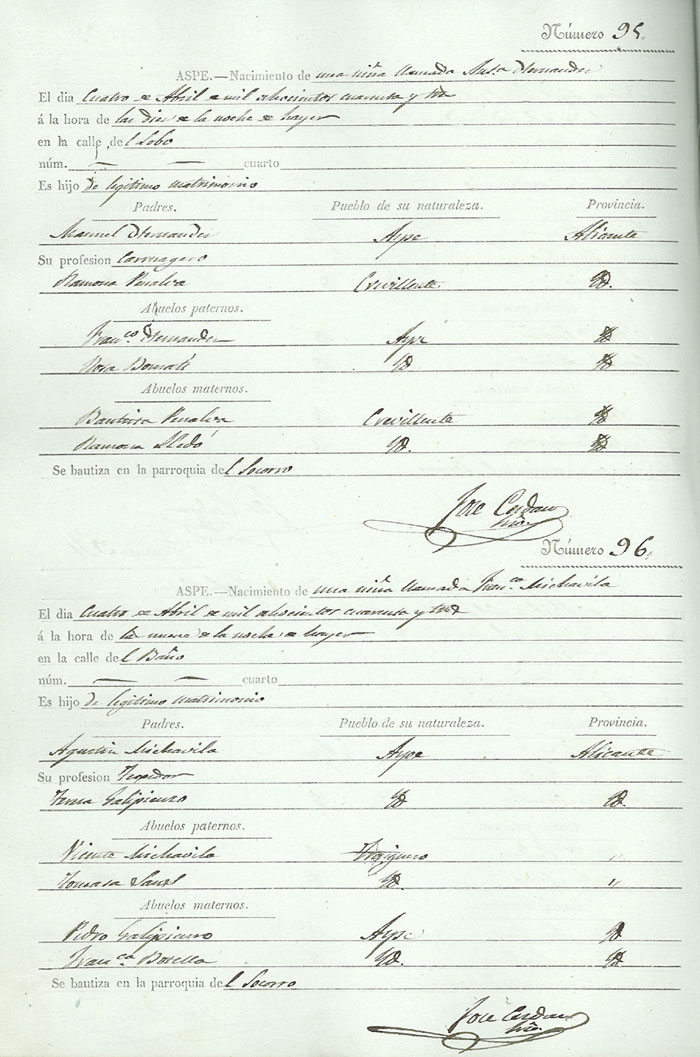 Número 95.
ASPE.—Nacimiento de una niña llamada Hernandez
El dia Cuatro de Abril de mil ochocientos cuarenta y tres
á la hora de las diez de la noche de hayer
en la calle del Lobo
núm. — — cuarto
Es hijo de legitimo matrimonio
Padres. Pueblo de su naturaleza. Provincia.
Manuel Hernandez Aspe Alicante
Su profesion Carruagero
Ramona Penalva Crevillente Yd.
Abuelos paternos.
Franco Hernandez Aspe Yd
Rosa Bomati Yd Yd
Abuelos maternos.
Bautista Penalva Crevillente Yd
Ramona Lledó Yd. Yd
Se bautiza en la parroquia del Socorro
Jose Cerdan
Número 96.
ASPE.—Nacimiento de una niña llamada Franca Michavila
El dia Cuatro de Abril de mil ochocientos cuarenta y tres
á la hora de la nueve de la noche de hayer
en la calle del Baño
núm. — — cuarto
Es hijo de legitimo matrimonio
Padres. Pueblo de su naturaleza. Provincia.
Agustin Michavila Aspe Alicante
Su profesion Texedor
Galipienzo Yd Yd.
Abuelos paternos.
Vicente Michavila "
Tomasa Yd. "
Abuelos maternos.
Pedro Galipienzo Aspe Yd
Franca Botella Yd. Yd
Se bautiza en la parroquia del Socorro
Jose Cerdan